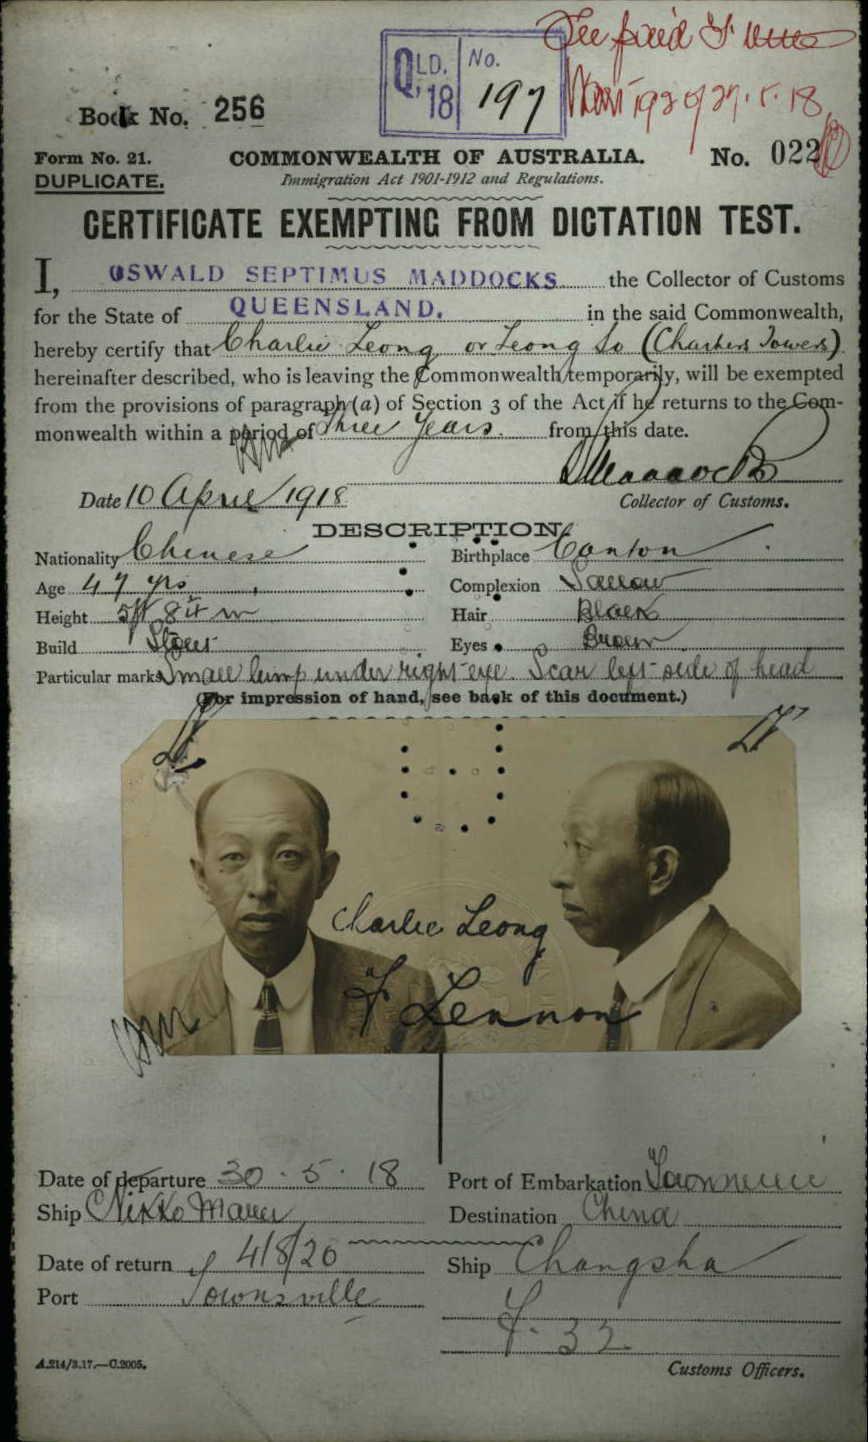 See paid
QLD. '18 No. 197
27.5.18
Book No. 256
Form No. 21. COMMONWEALTH OF AUSTRALIA. No. 022
DUPLICATE. Immigration Act 1901-1912 and Regulations.
CERTIFICATE EXEMPTING FROM DICTATION TEST.
I, OSWALD SEPTIMUS MADDOCKS the Collector of Customs
for the State of QUEENSLAND. in the said Commonwealth,
hereby certify that Charlie Leong or Leong So (Charters Towers)
hereinafter described, who is leaving the Commonwealth temporarily, will be exempted
from the provisions of paragraph (a) of Section 3 of the Act if he returns to the Com-
monwealth within a period of Three Years. from this date.
Date 10 April 1918
Collector of Customs.
DESCRIPTION
Nationality Chinese Birthplace Canton
Age 47 yrs Complexion Sallow
Height 5ft 8¼ in Hair Black
Build Stout Eyes Brown
Particular marks Small lump under right eye. Scar left side of head
(For impression of hand, see back of this document.)
Charlie Leong
F Lennon
Date of departure 30.5.18 Port of Embarkation Townsville
Ship Nikko Maru Destination China
Date of return 4/8/20 Ship Changsha
Port Townsville
F. 32
A.214/3.17.—C.2005. Customs Officers.